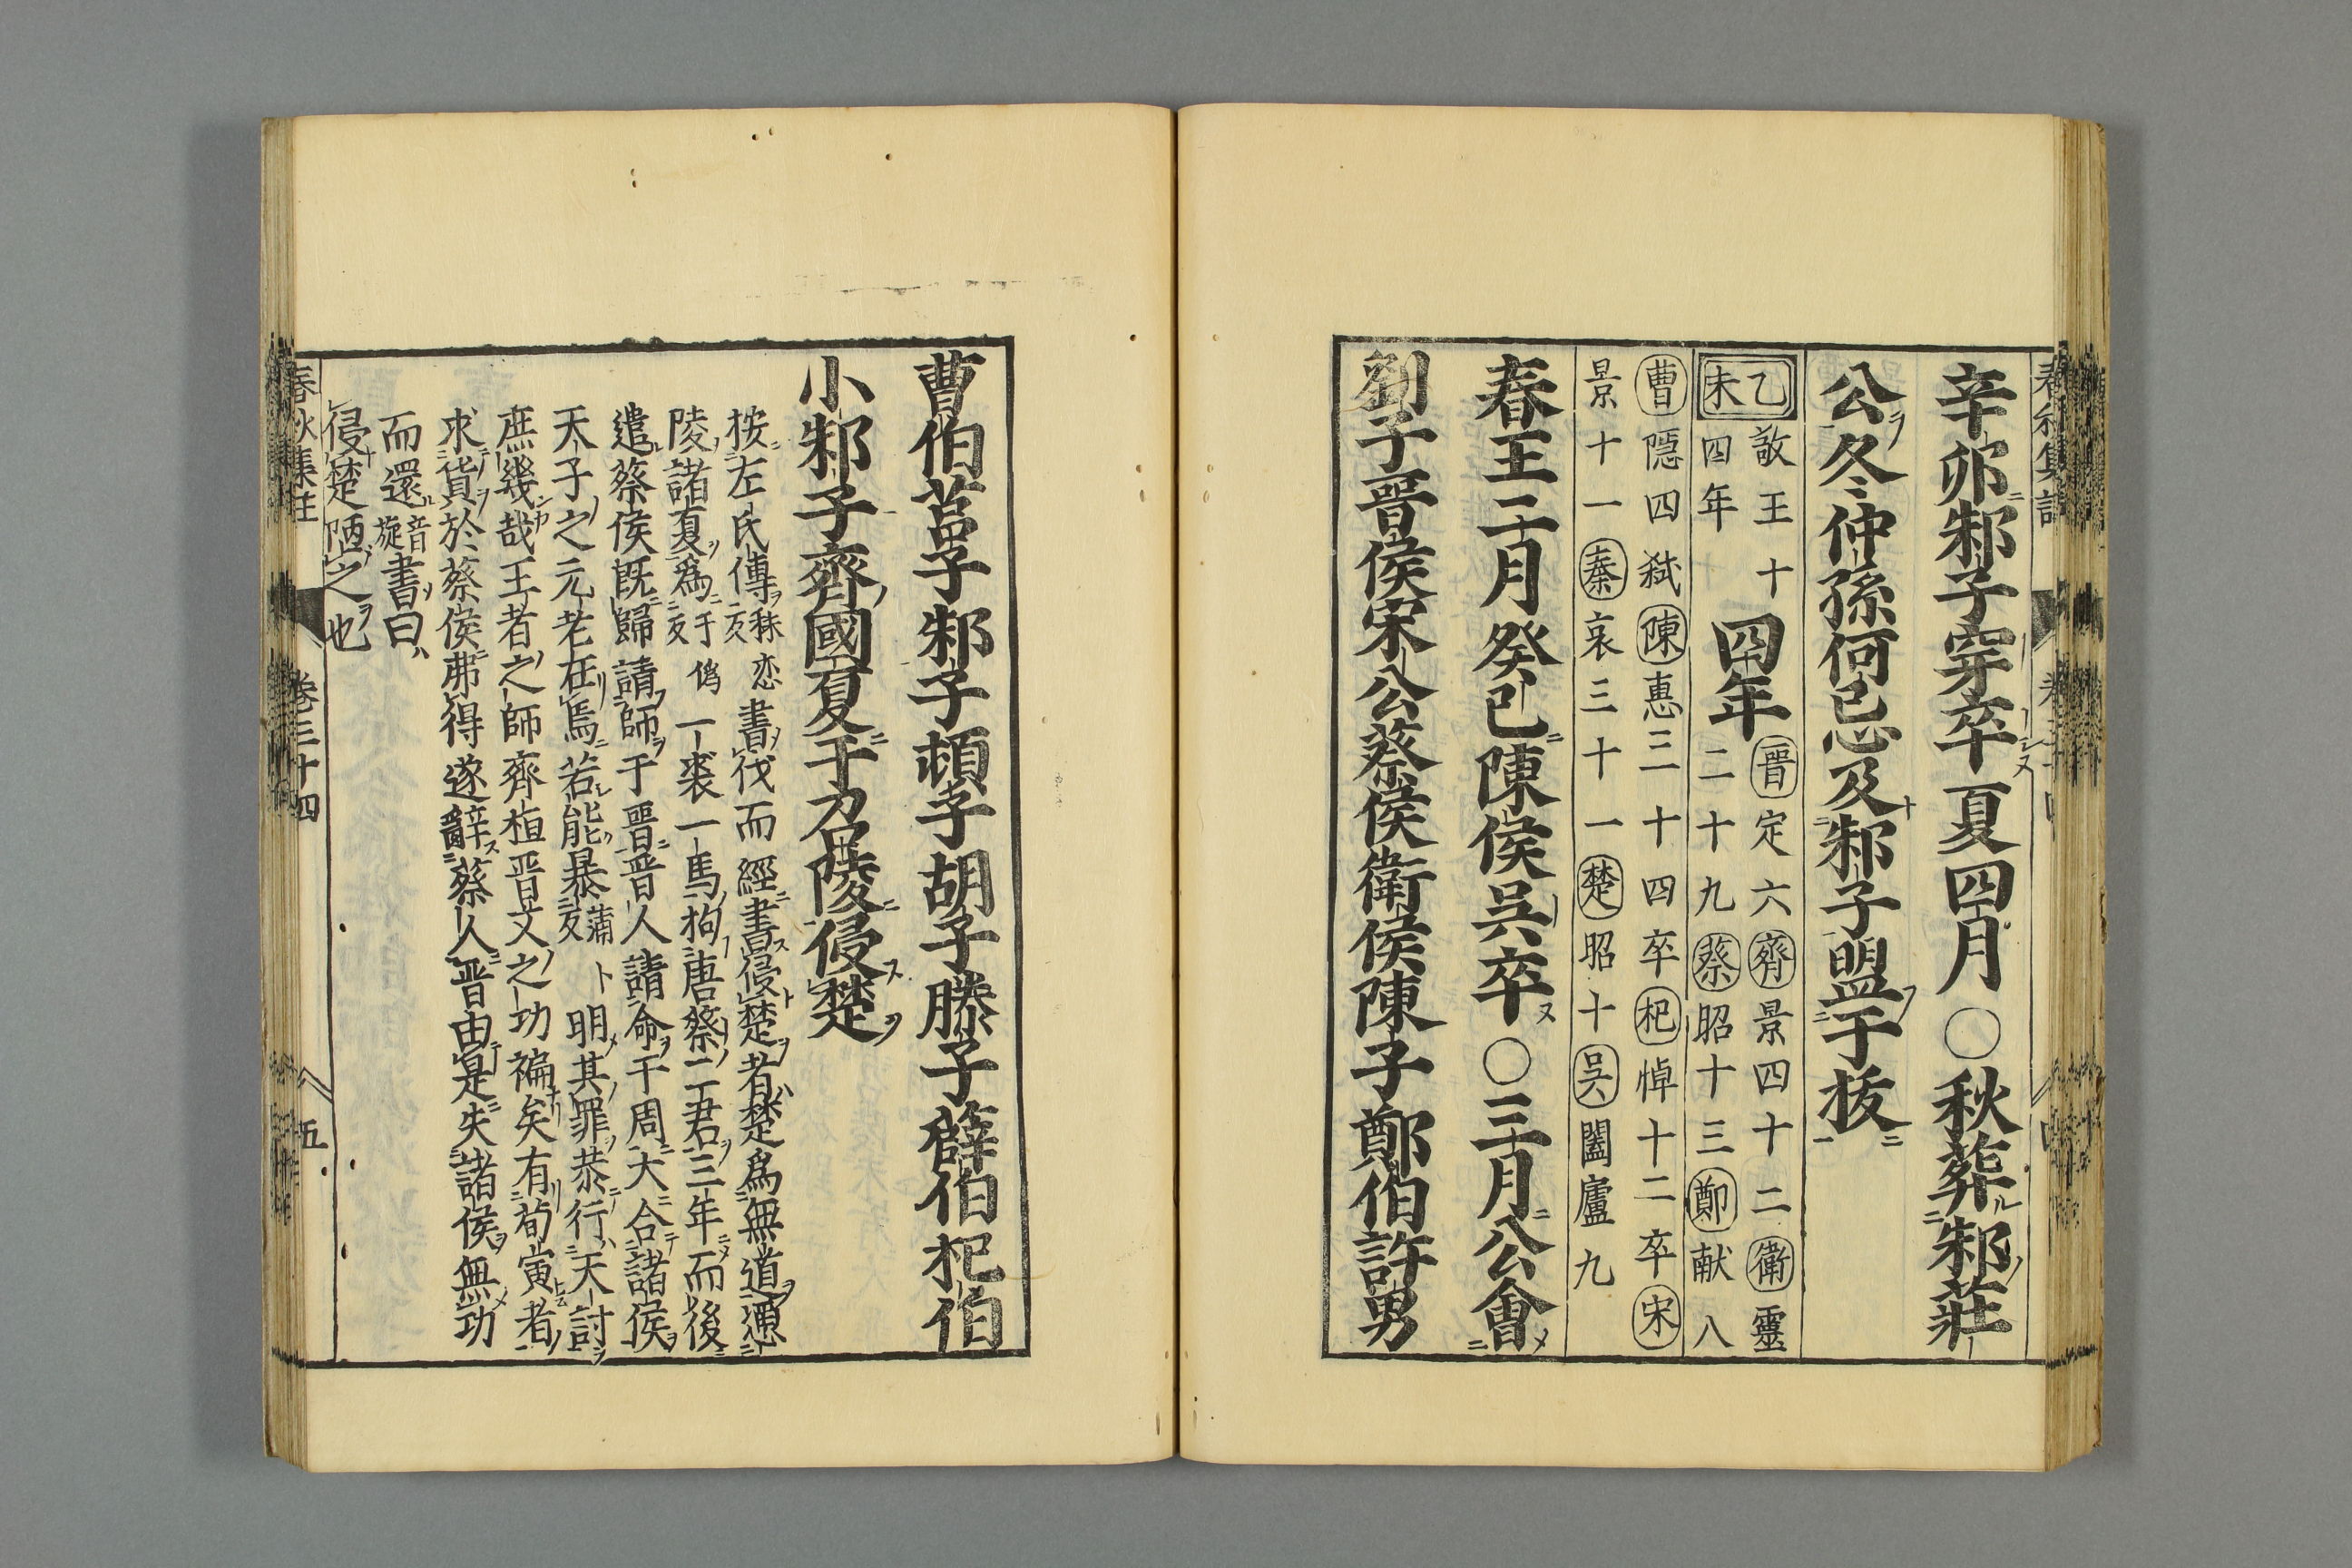 辛卯邾子穿卒夏四月○秋葬邾莊
公冬仲孫何忌及邾子盟于抜
乙未
敬王十
四年
四年
晋定六齊景四十二衛靈
二十九蔡昭十三鄭献八
曹隠四弑陳惠三十四卒杞悼十二卒宋
景十一秦哀三十一楚昭十吳闔廬九
春王二月癸巳陳侯吳卒○三月公會
劉子晉侯宋公蔡侯衛侯陳子鄭伯許男
曹伯莒子邾子頓子胡子滕子薛伯杞伯
小邾子齊國夏于召陵侵楚
按左氏傳秣恋反書伐而經書侵楚者楚爲無道憑
陵諸夏爲于僞反一裘一馬拘唐蔡二君三年而後
遣蔡侯既歸請師于晋晋人請命于周大合諸侯
天子之元老在焉若能暴蒲卜反明其罪恭行天討
庶幾哉王者之師齊桓晋文之功褊矣有荀寅者
求貨於蔡侯弗得遂辭蔡人晋由是失諸侯無功
而還音旋書曰
侵楚陋之也
春秋集註 卷三十四 五